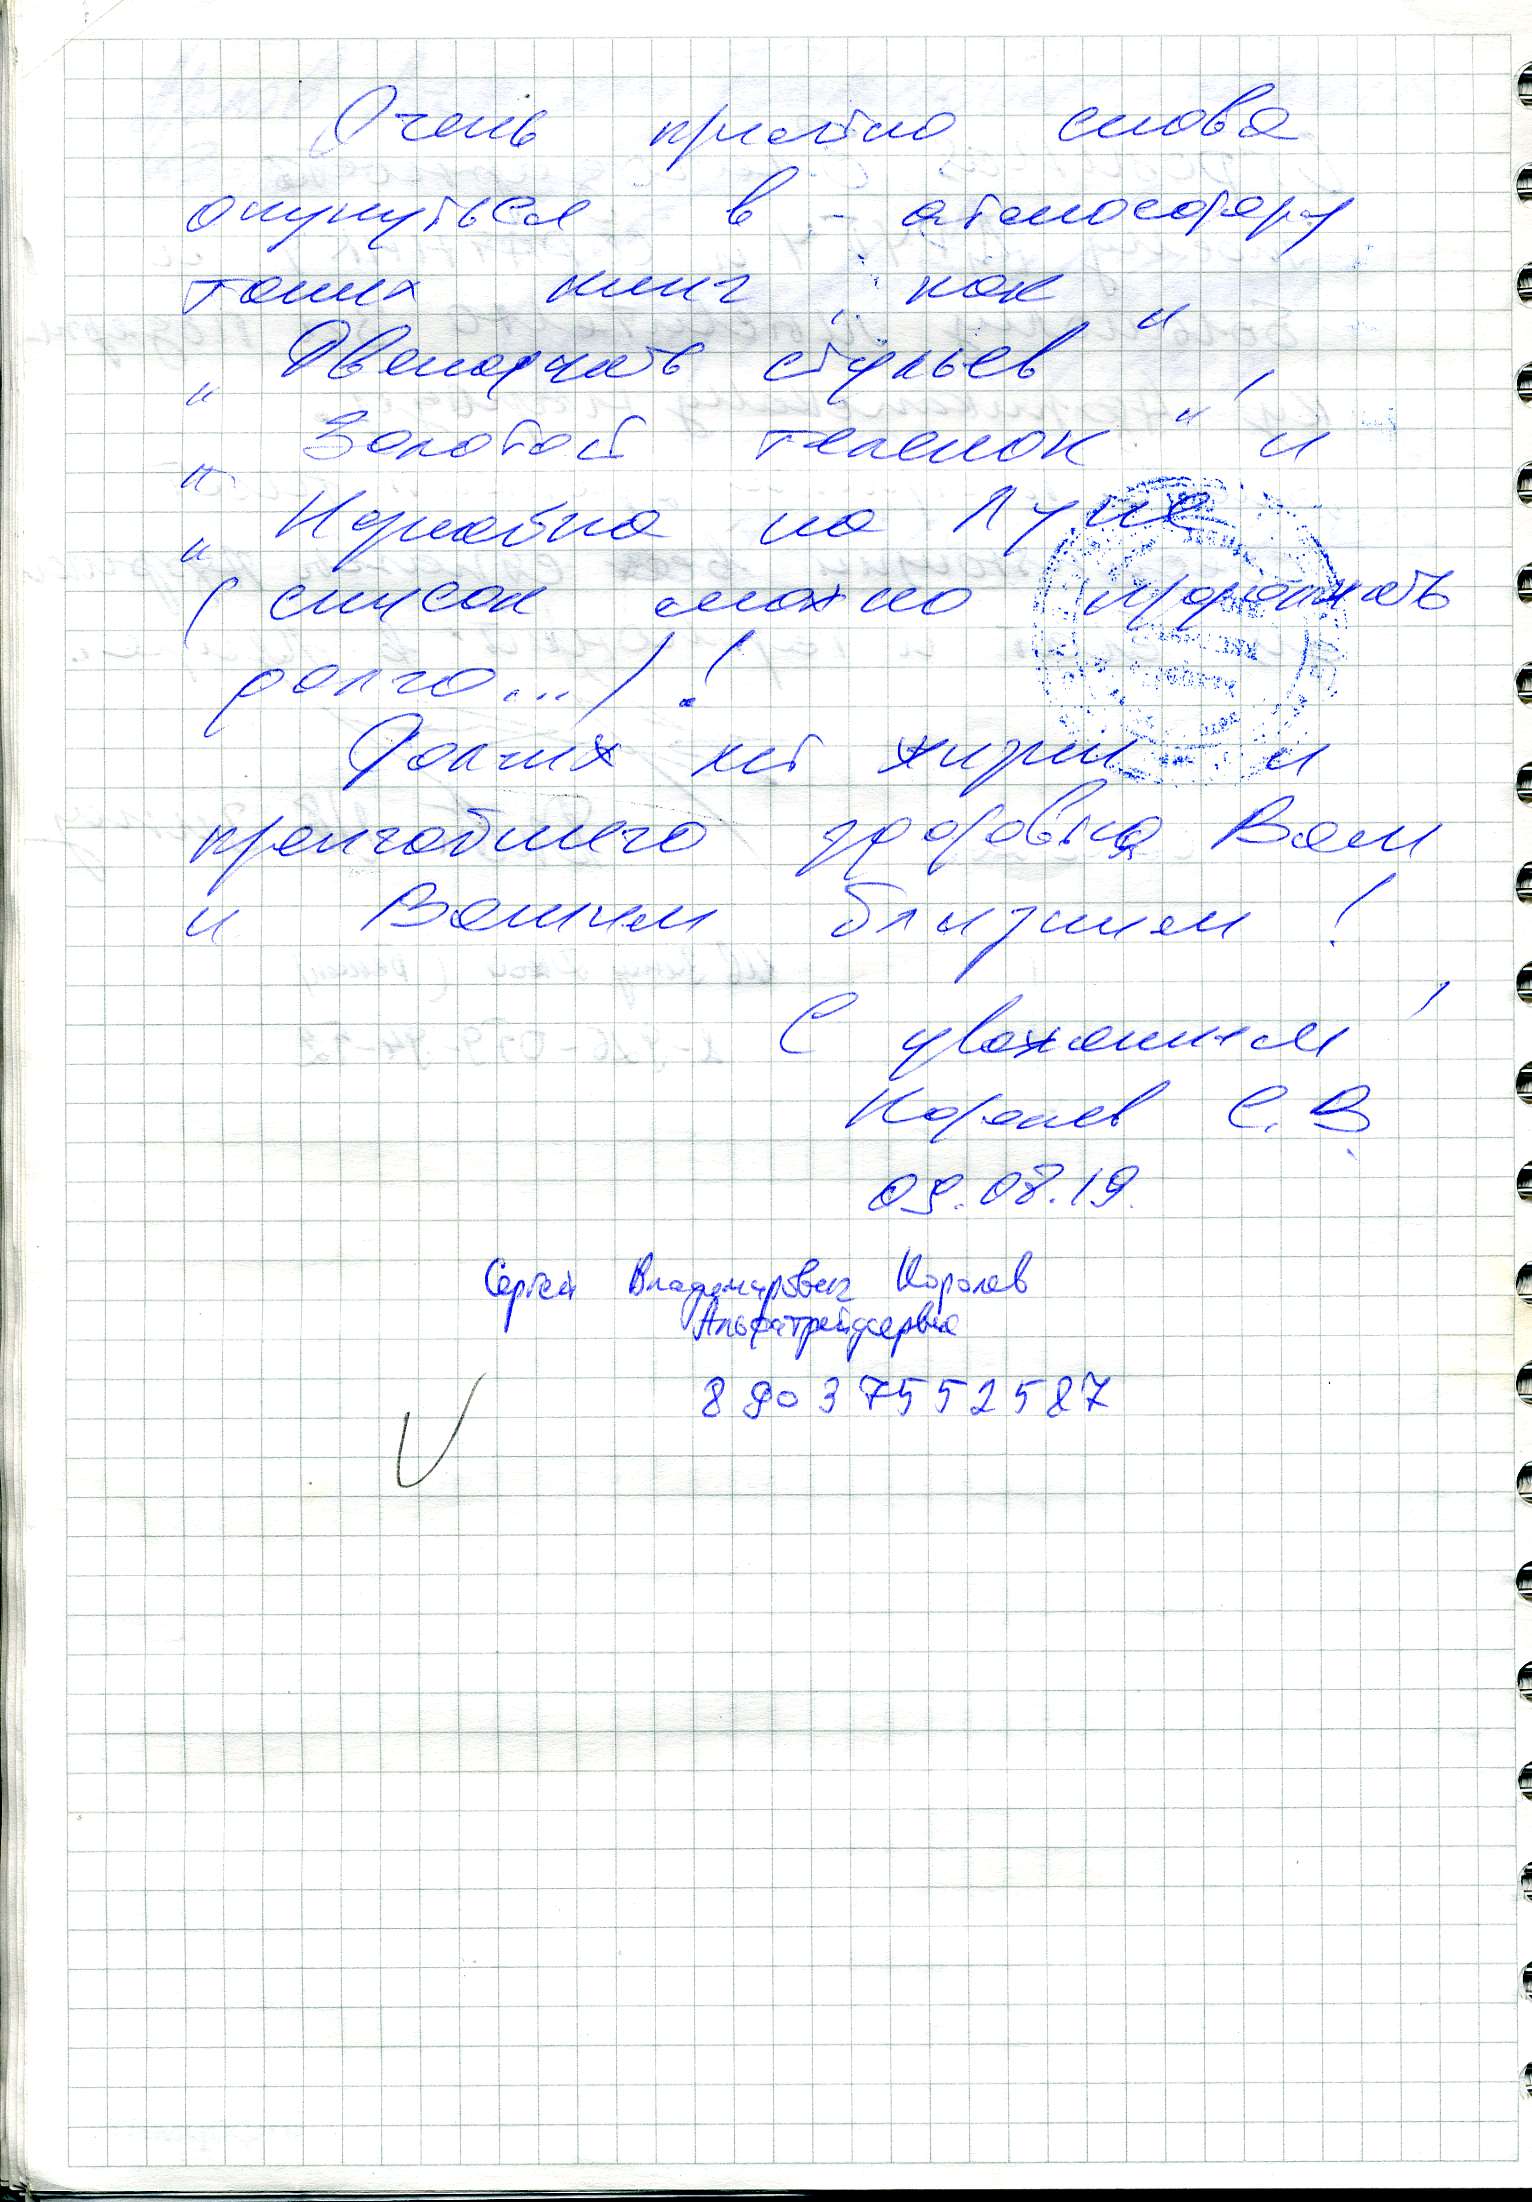 Очень приятно снова
окунуться в атмосферу
таких книг, как
„Двенадцать стульев",
„Золотой теленок" и
„Незнайка на Луне"
(список можно продолжать
долго...)!
Долгих лет жизни и
крепчайшего здоровья Вам
и Вашим близким!
С уважением,
Королев С.В.
09.08.19.
Сергей Владимирович Королев
Альфатрейдсервис
89037552587